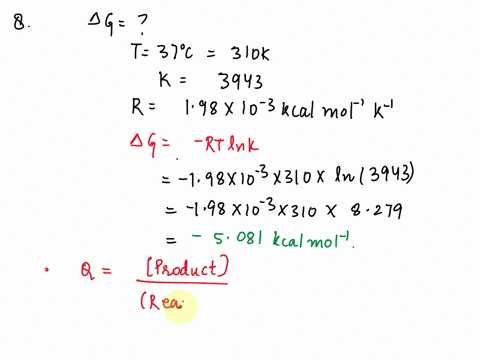 8. ΔG = ?
T = 37°C = 310K
K = 3943
R = 1.98 × 10⁻³ kcal mol⁻¹ K⁻¹
ΔG = -RT lnK
= -1.98 × 10⁻³ × 310 × ln(3943)
= -1.98 × 10⁻³ × 310 × 8.279
= - 5.081 kcal mol⁻¹.
• Q = [Product]
(Rea